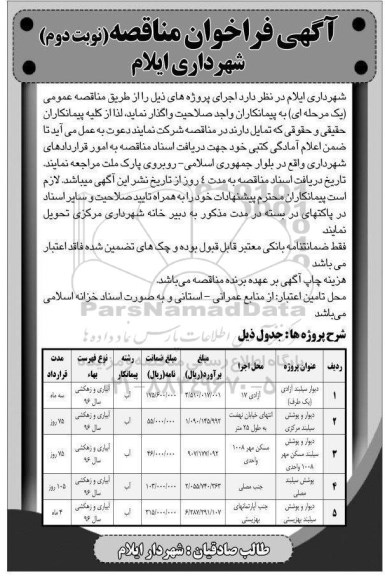 آگهی فراخوان مناقصه (نوبت دوم)
شهرداری ایلام
شهرداری ایلام در نظر دارد اجرای پروژه های ذیل را از طریق مناقصه عمومی
(یک مرحله ای) به پیمانکاران واجد صلاحیت واگذار نماید، لذا از کلیه پیمانکاران
حقیقی و حقوقی که تمایل دارند در مناقصه شرکت نمایند دعوت به عمل می آید تا
ضمن اعلام آمادگی کتبی خود جهت دریافت اسناد مناقصه به امور قراردادهای
شهرداری واقع در بلوار جمهوری اسلامی - روبروی پارک ملت مراجعه نمایند.
تاریخ دریافت اسناد مناقصه به مدت ٤ روز از تاریخ نشر این آگهی میباشد. لازم
است پیمانکاران محترم پیشنهادات خود را به همراه تایید صلاحیت و سایر اسناد
در پاکتهای در بسته در مدت مذکور به دبیر خانه شهرداری مرکزی تحویل
نمایند.
فقط ضمانتنامه بانکی معتبر قابل قبول بوده و چک های تضمین شده فاقد اعتبار
می باشد
هزینه چاپ آگهی بر عهده برنده مناقصه می‌باشد.
محل تامین اعتبار: از منابع عمرانی - استانی و به صورت اسناد خزانه اسلامی
می‌باشد
ParsNamadData
شرح پروژه ها: جدول ذیل
ردیف عنوان پروژه محل اجرا مبلغ برآورد(ریال) مبلغ ضمانت نامه(ریال) رشته پیمانکار نوع فهرست بهاء مدت قرارداد
۱ دیوار سیلبند آزادی (یک طرف) آزادی ۱۷ ۱۷۵/۶۰۰/۰۰۰ آب آبیاری و زهکشی سال ۹۶ سه ماه
۲ دیوار و پوشش سیلبند مرکزی انتهای خیابان نهضت به طول ۲۵ متر ۱/۰۹۰/۱۴۵/۹۹۳ ۵۵/۰۰۰/۰۰۰ آب آبیاری و زهکشی سال ۹۶ ۷۵ روز
۳ دیوار و پوشش سیلبند مسکن مهر ۱۰۰۸ واحدی مسکن مهر ۱۰۰۸ واحدی ۹۰۷/۱۷۷/۰۹۲ ۴۶/۰۰۰/۰۰۰ آب آبیاری و زهکشی سال ۹۶ ۷۵ روز
۴ پوشش سیلبند مصلی جنب مصلی ۲/۰۵۵/۷۴۰/۳۶۳ ۱۰۳/۰۰۰/۰۰۰ آب آبیاری و زهکشی سال ۹۶ ۱۰۵ روز
۵ دیوار و پوشش سیلبند بهزیستی جنب آپارتمانهای بهزیستی ۶/۲۸۷/۲۹۱/۱۰۷ ۳۱۵/۰۰۰/۰۰۰ آب آبیاری و زهکشی سال ۹۶ ۴ ماه
طالب صادقیان : شهردار ایلام